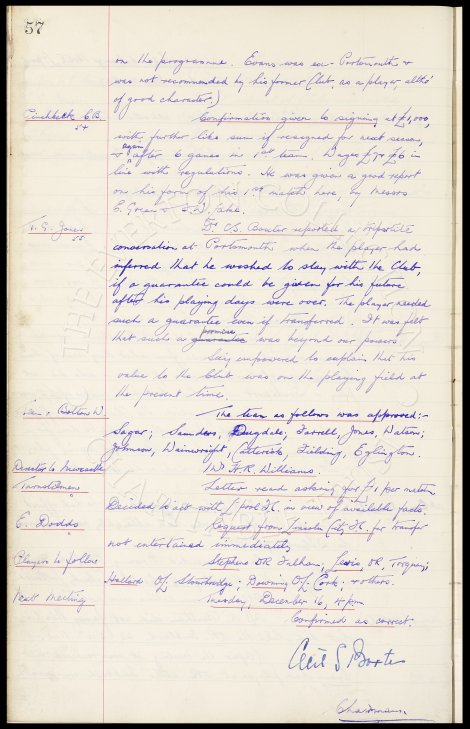 57
on the programme. Evans was ex- Portsmouth &
was not recommended by his former Club, as a player, altho'
of good character.)
Pinchbeck C.B. Confirmation given to signing at £1,000,
54
with further like sum if resigned for next season,
& again after 6 games in 1st team. Wages £7 & £6 in
line with regulations. He was given a good report
on his form of his 1st match here, by Messrs
E. Green & S.W.
T. G. Jones Dr. C.S. Baxter reported a tripartite
55
conversation at Portsmouth when the player had
inferred that he wished to stay with the Club,
if a guarantee could be given for his future
after his playing days were over. The player needed
such a guarantee even if transferred. It was felt
promise
that such a guarantee was beyond our powers
Secy empowered to explain that his
value to the Club was on the playing field at
the present time.
Team v Bolton W. The team as follows was approved:-
Sagar; Saunders, Dugdale; Farrell, Jones, Watson;
Johnson, Wainwright, Catterick, Fielding, Eglington.
Director to Newcastle Mr. F.R. Williams.
Turnstilemen Letter read asking for £1 per match
Decided to act with L'pool F.C. in view of available facts
E. Dodds Request from Lincoln City F.C. for transfer
not entertained immediately
Players to follow Stephens OR Fulham, Lewis, OR, Torquay;
Hallard OL Stourbridge: Downing OL Cork; & others.
Next Meeting Tuesday, December 16, 4 pm
Confirmed as correct.
Cecil S Baxter
Chairman.